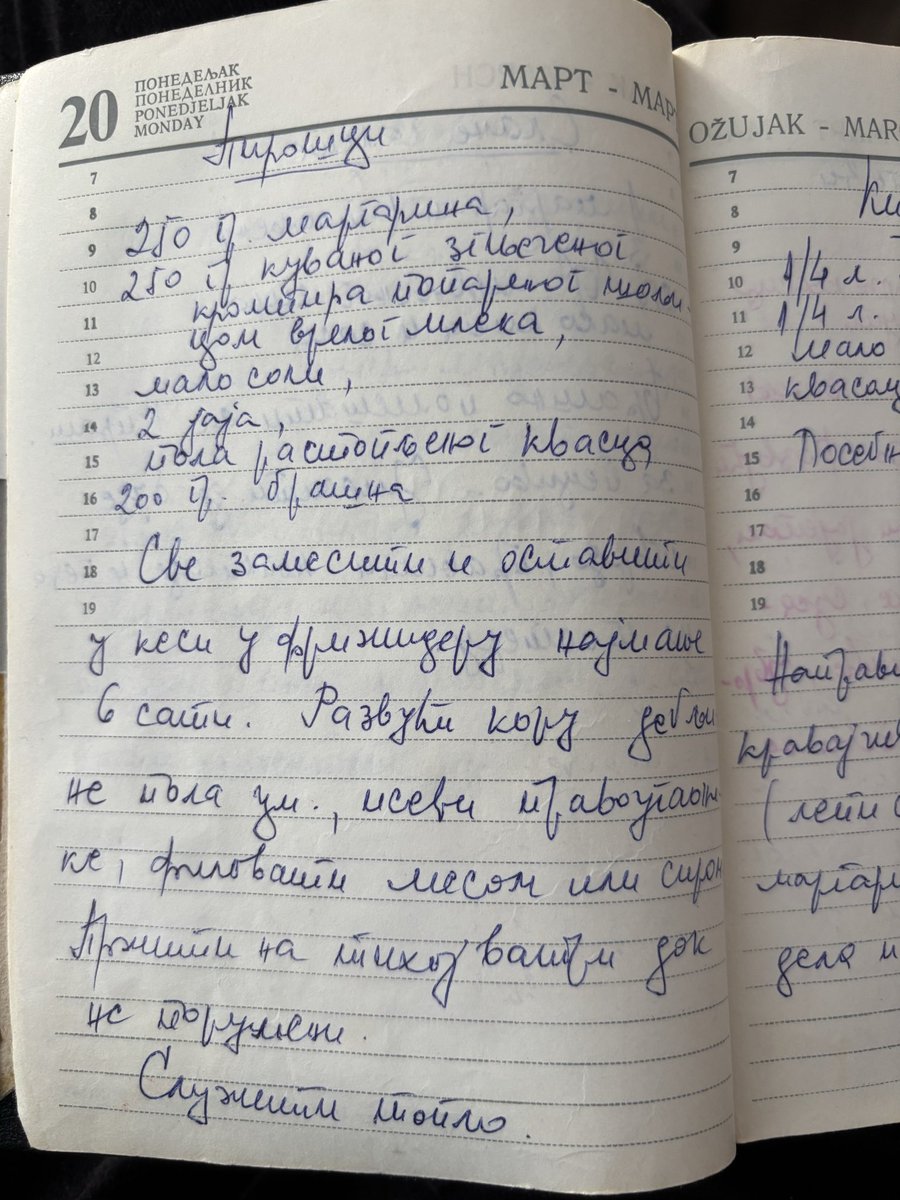 20
ПОНЕДЕЉАК
ПОНЕДЕЛНИК
PONEDJELJAK
MONDAY
МАРТ - МАР
Пирошци
7
8
9 250 гр. маргарина,
10 250 гр куваног згњеченог
11 кромпира попареног шољи-
12 цом врелог млека,
13 мало соли,
14 2 јаја,
15 пола растопљеног квасца
16 200 гр. брашна
17
18 Све замесити и оставити
19
у кеси у фрижидеру најмање
6 сати. Развући кору дебљи
не пола цм., исећи правоугаони-
ке, филовати месом или сиром
Пржити на тихој ватри док
не порумени.
Служити топло.
OŽUJAK - MAR
7
8
9
10 1/4 л.
11 1/4 л.
12 Мало
13 квасац
14
15 Посебн
16
17
18
19
Направи
(лети
маргари
дела